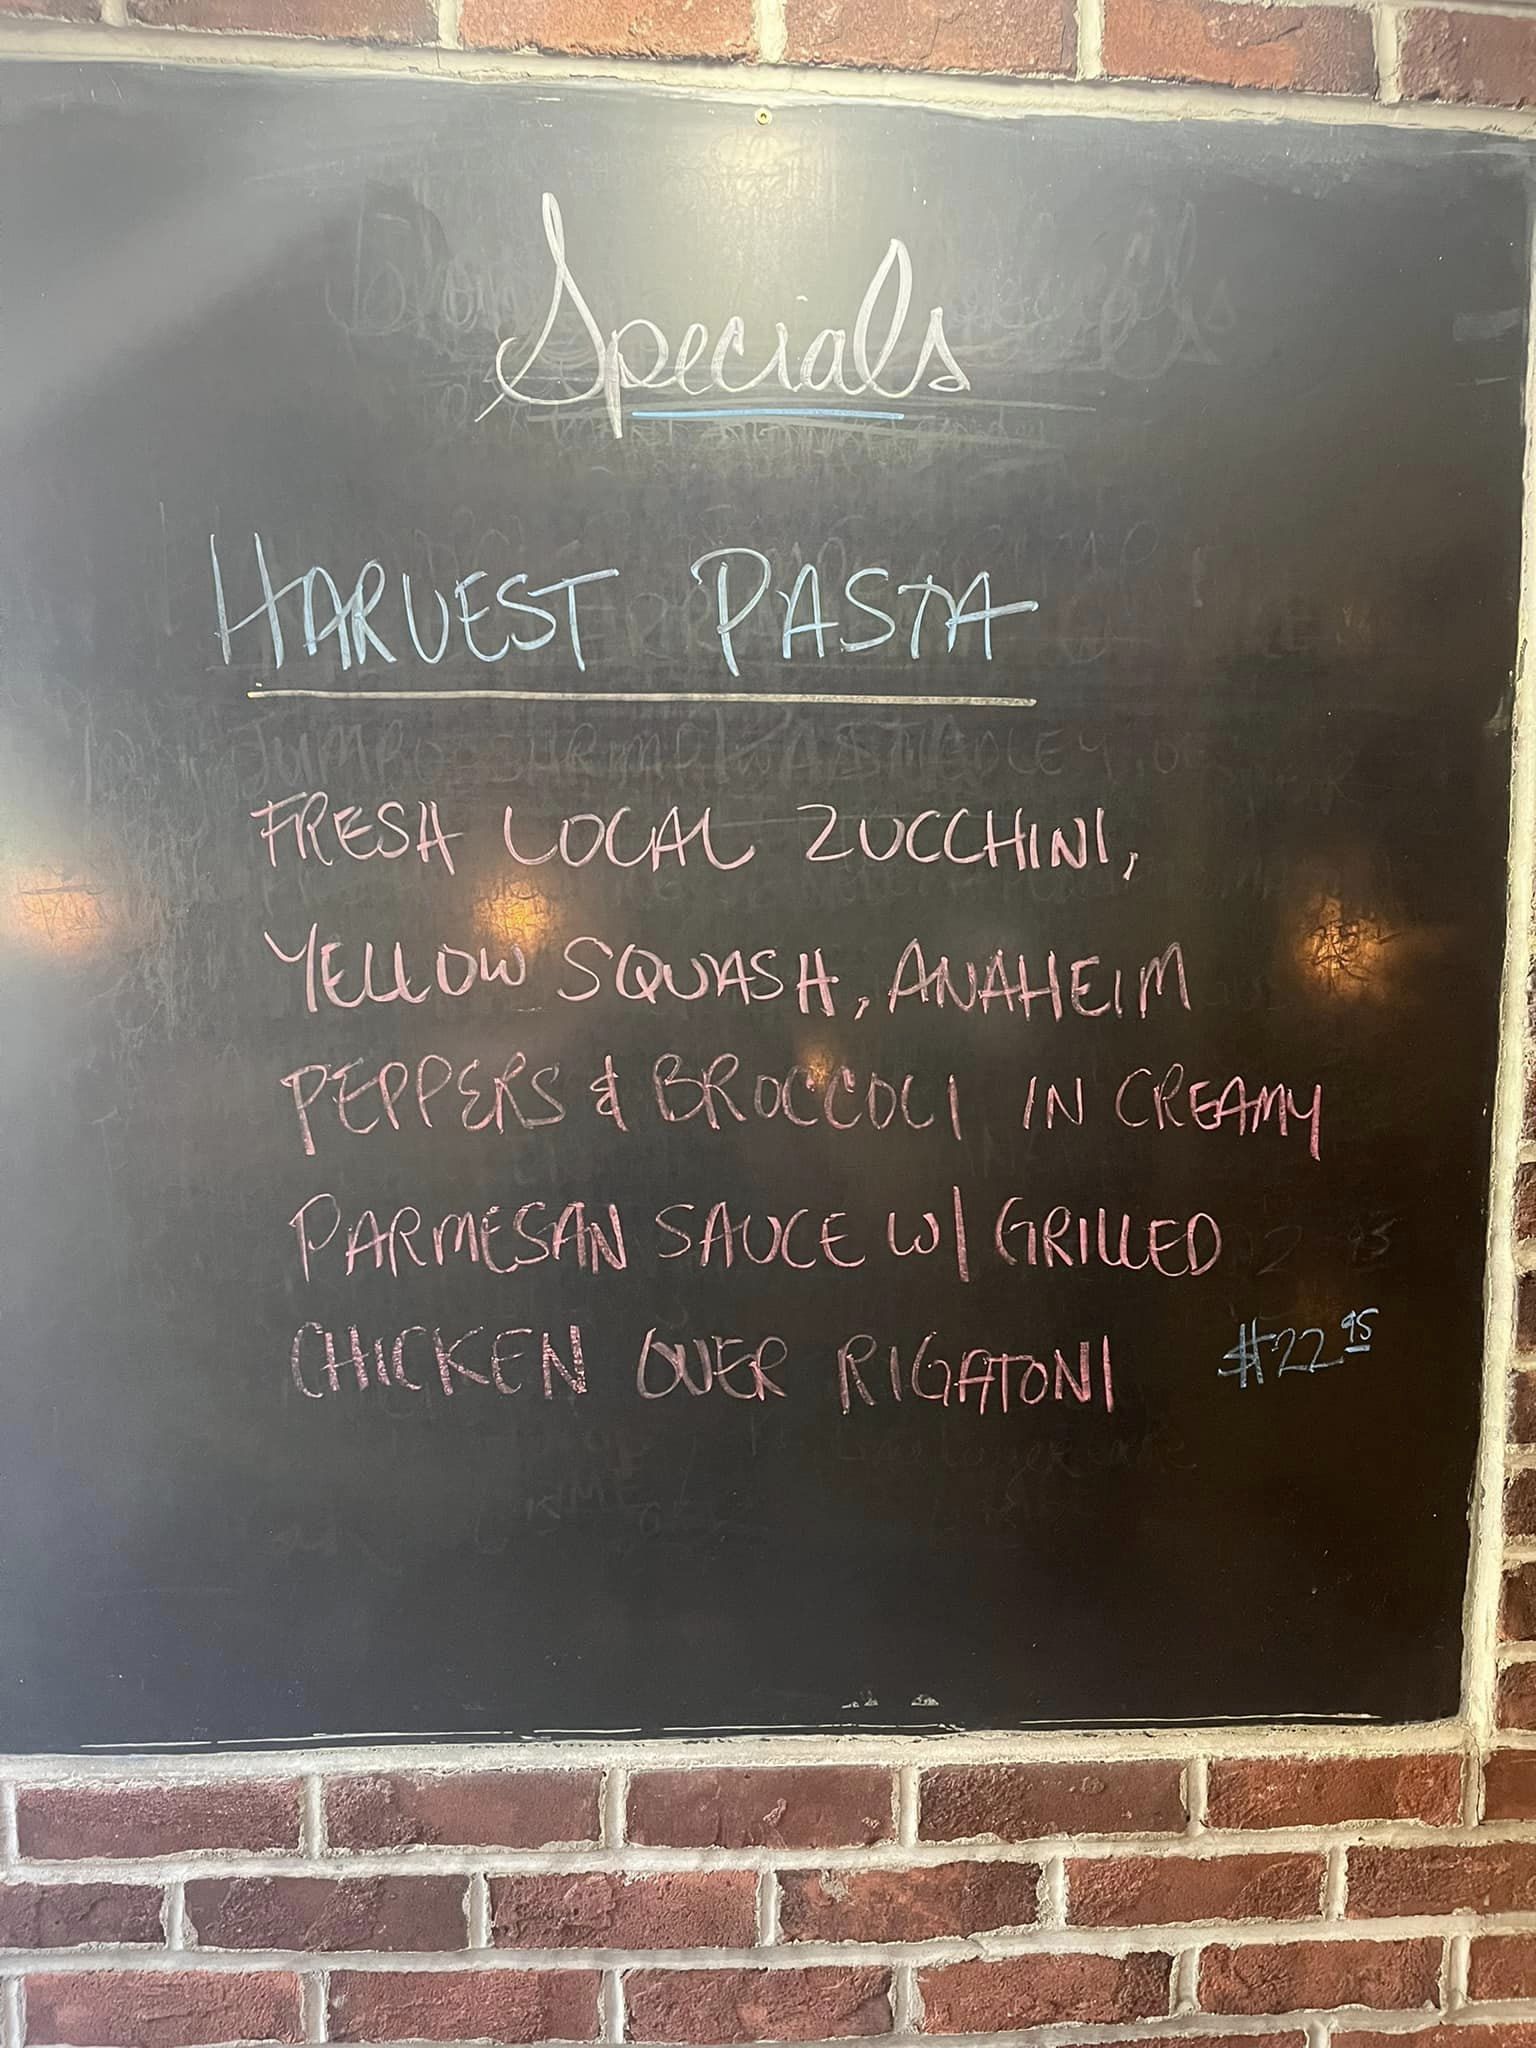 Specials
HARVEST PASTA
JUMBO SHRIMP
FRESH LOCAL ZUCCHINI,
YELLOW SQUASH, ANAHEIM
PEPPERS & BROCCOLI IN CREAMY
PARMESAN SAUCE W/ GRILLED
CHICKEN OVER RIGATONI $22.95